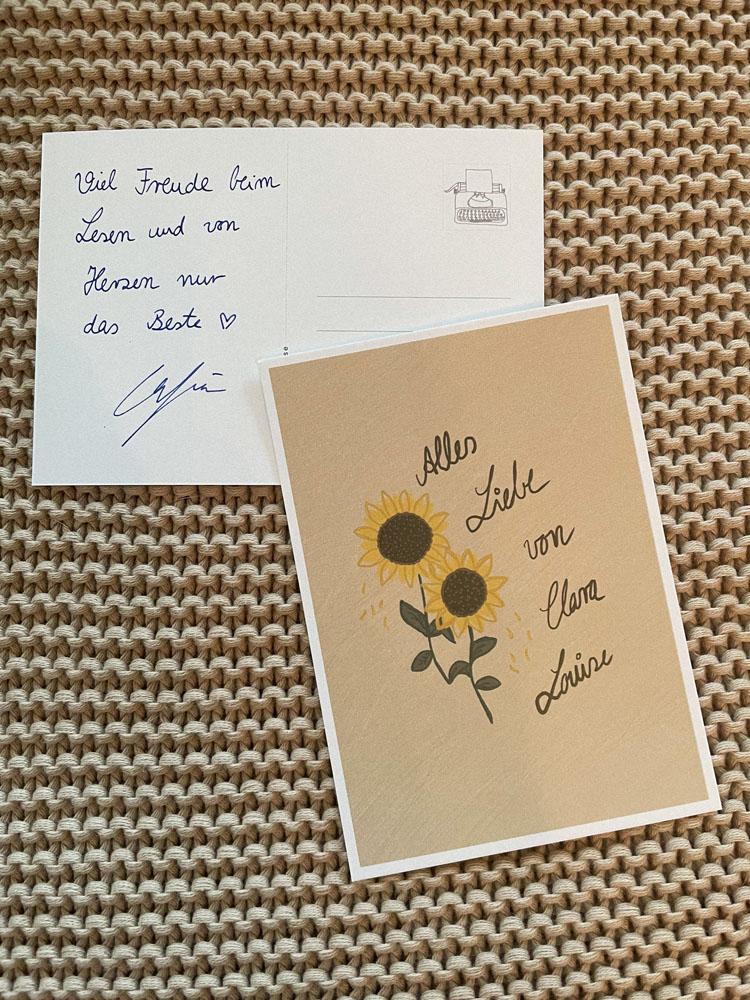 Viel Freude beim
Lesen und von
Herzen nur
das Beste ♡
se
Alles
Liebe
von
Clara
Louise